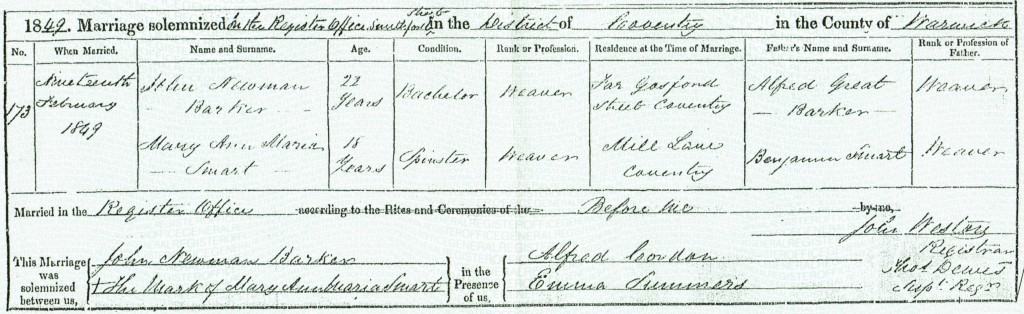 1849. Marriage solemnized in the Register Office Smithford Street in the District of Coventry in the County of Warwick
No. When Married. Name and Surname. Age. Condition. Rank or Profession. Residence at the Time of Marriage. Father's Name and Surname. Rank or Profession of Father.
173 Nineteenth February 1849 John Newman Barker 22 Years Bachelor Weaver Far Gosford Street Coventry Alfred Great Barker Weaver
Mary Ann Maria Smart 18 Years Spinster Weaver Mill Lane Coventry Benjamin Smart Weaver
Married in the Register Office according to the Rites and Ceremonies of the Before me by me,
John Weston
Registrar
Thos Dewes
Supt. Regr
This Marriage was solemnized between us, John Newman Barker
The Mark of Mary Ann Maria Smart
in the Presence of us, Alfred Condon
Emma Summers